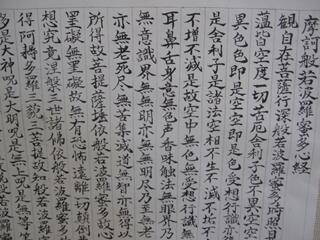 摩訶般若波羅蜜多心経
観自在菩薩行深般若波羅蜜多時照見
蘊皆空度一切苦厄舎利子色不異空空
異色色即是空空即是色受想行識亦
是舎利子是諸法空相不生不滅不垢不
不増不減是故空中無色無受想行識
耳鼻舌身意無色声香味触法無眼界乃
無意識界無無明亦無無明尽乃至無老
亦無老死尽無苦集滅道無智亦無得以
所得故菩提薩埵依般若波羅蜜多故心
罣礙無罣礙故無有恐怖遠離一切顛倒
想究竟涅槃三世諸仏依般若波羅蜜多
得阿耨多羅三藐三菩提故知般若波羅蜜
多是大神呪是大明呪是無上呪是無等